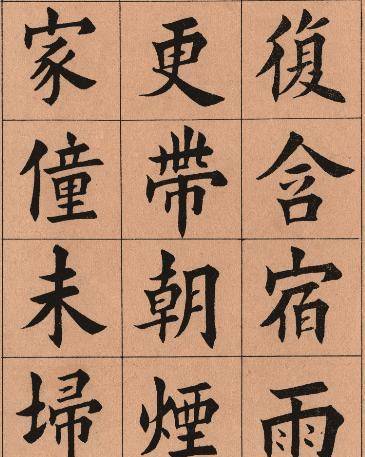 復含宿雨
更帶朝煙
家僮未埽